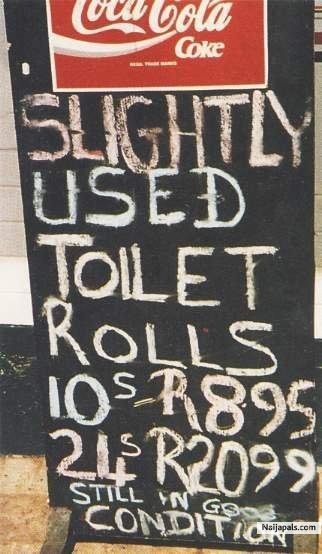 Coca-Cola
Coke
REGD. TRADE MARKS
SLIGHTLY
USED
TOILET
ROLLS
10s - R8.95
24s R2099
STILL IN GOOD
CONDITION
Naijapals.com